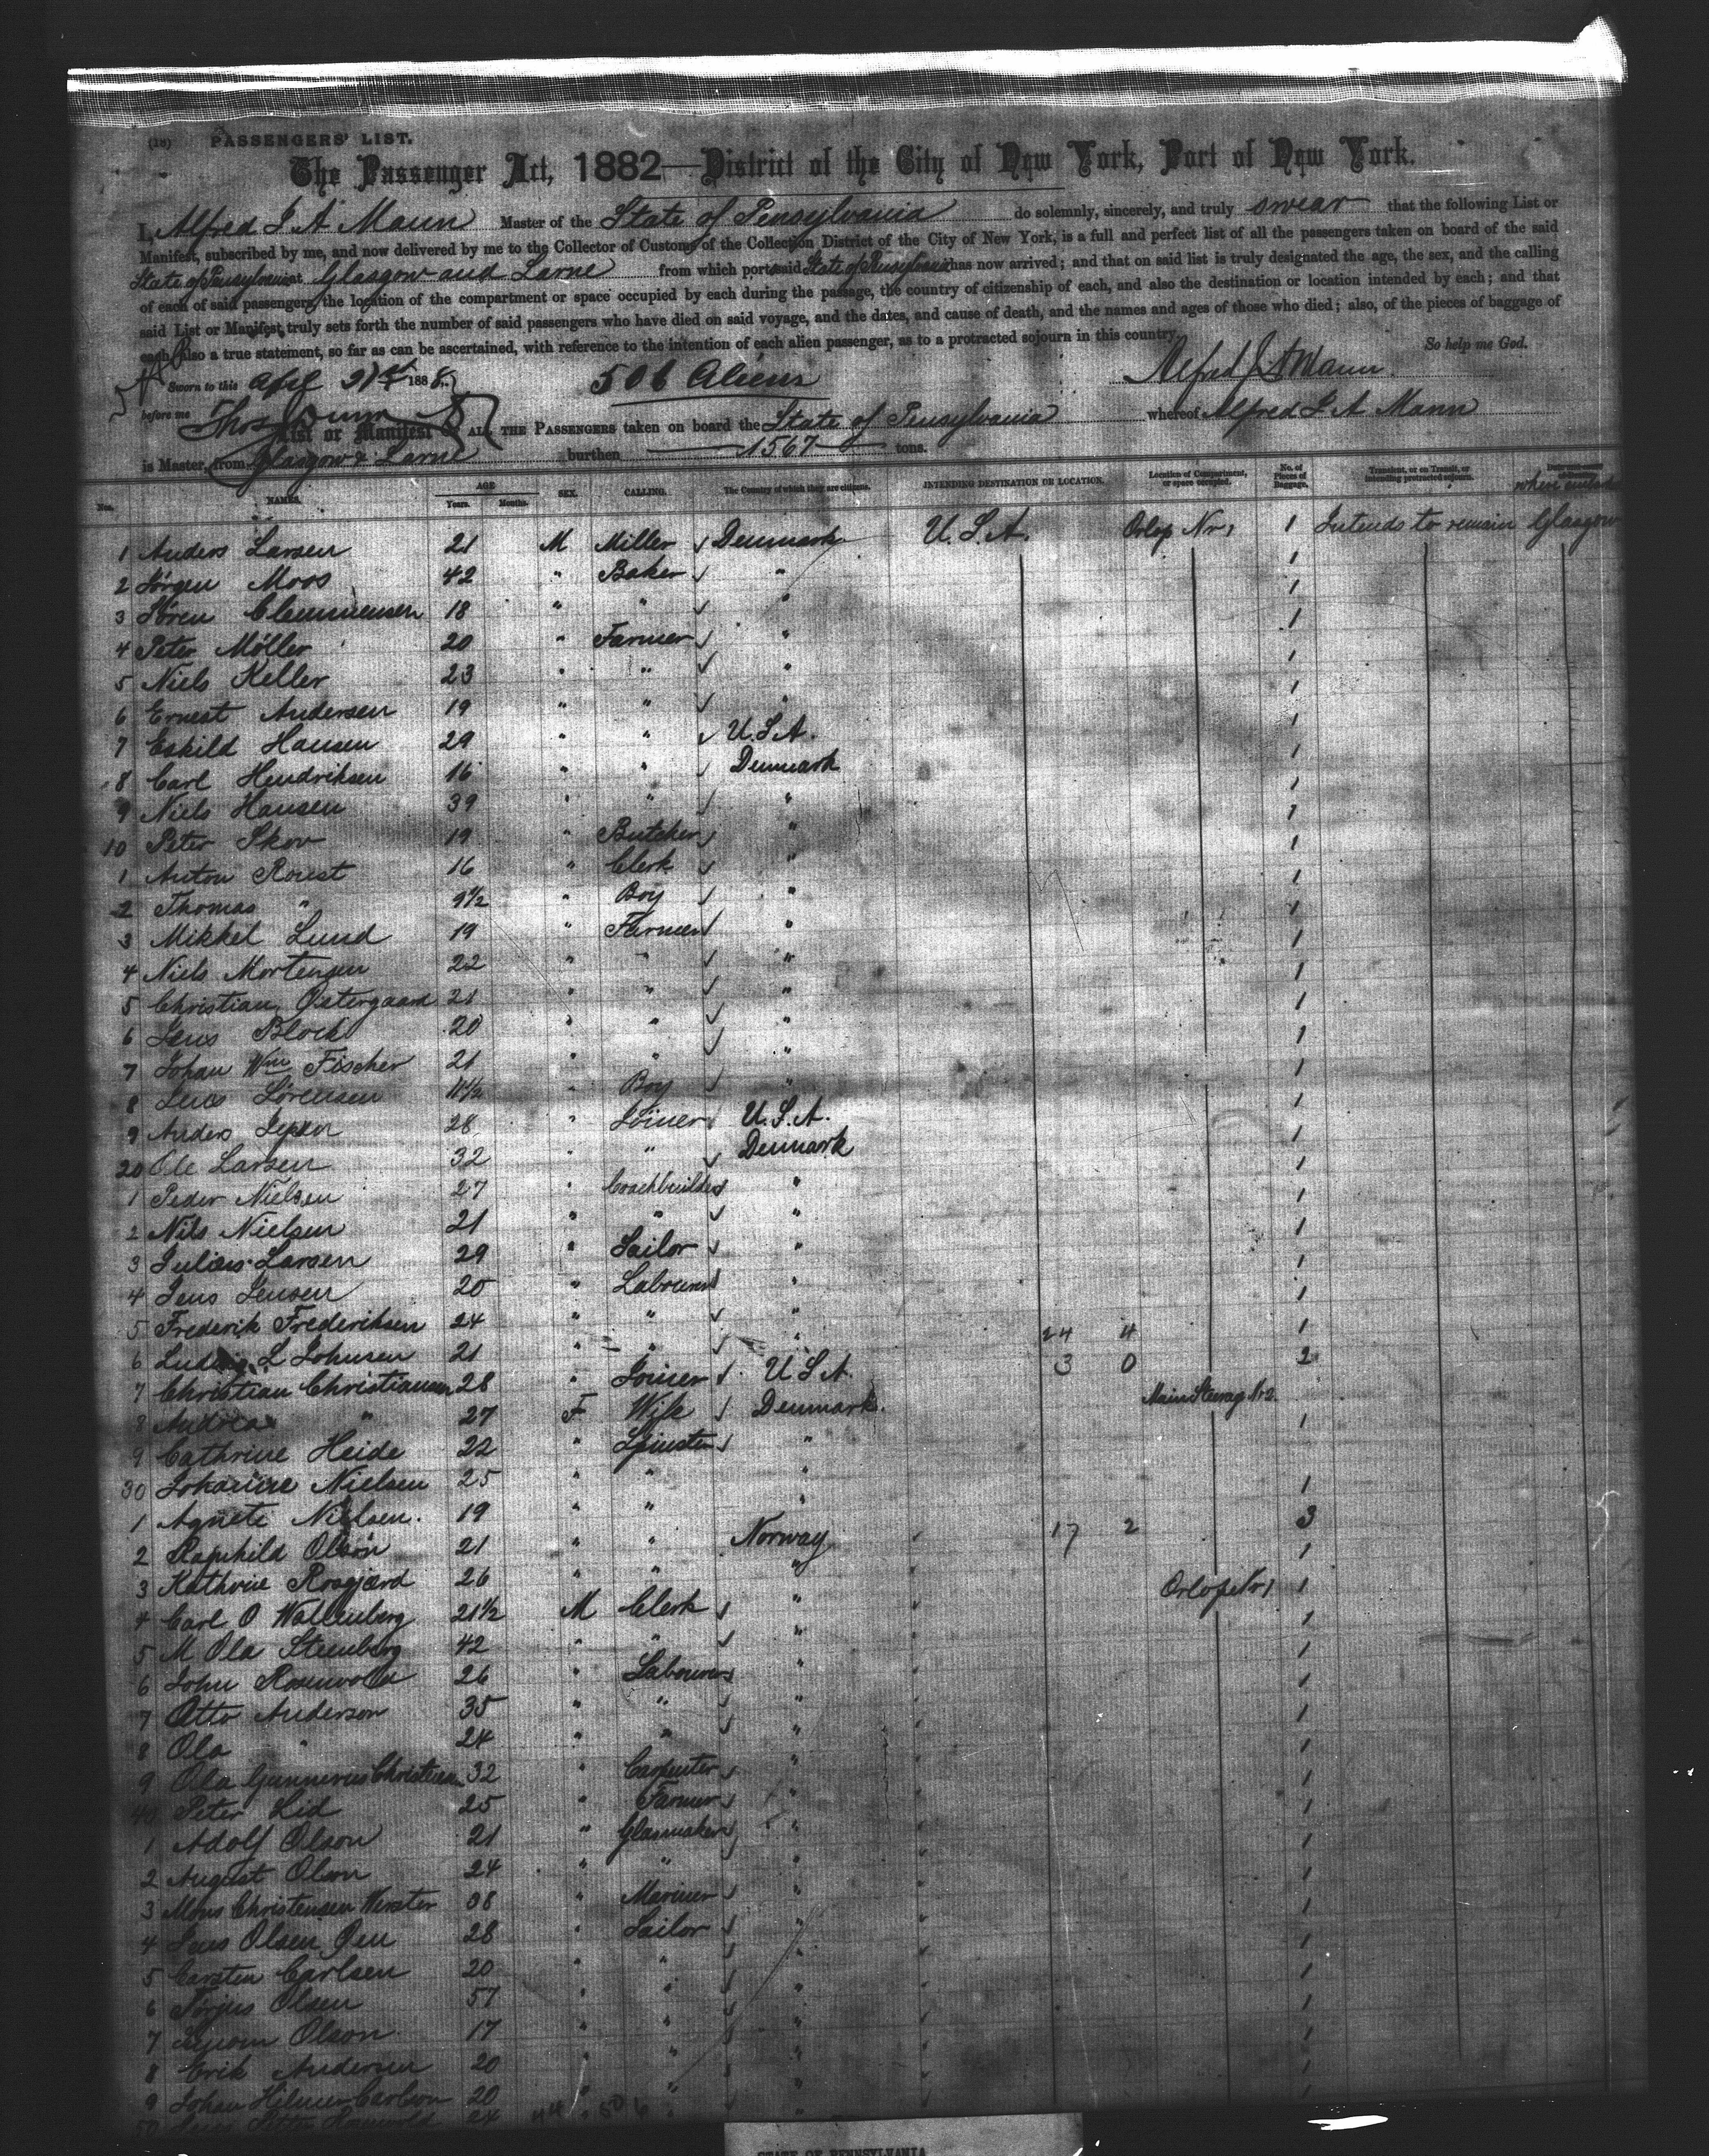 (18) PASSENGERS' LIST.
The Passenger Act, 1882—District of the City of New York, Port of New York.
I, Alfred J A Mann Master of the State of Pensylvania do solemnly, sincerely, and truly swear that the following List or
Manifest, subscribed by me, and now delivered by me to the Collector of Customs of the Collection District of the City of New York, is a full and perfect list of all the passengers taken on board of the said
State of Pensylvania at Glasgow and Larne from which port said State of Pensylvania has now arrived; and that on said list is truly designated the age, the sex, and the calling
of each of said passengers, the location of the compartment or space occupied by each during the passage, the country of citizenship of each, and also the destination or location intended by each; and that
said List or Manifest truly sets forth the number of said passengers who have died on said voyage, and the dates, and cause of death, and the names and ages of those who died; also, of the pieces of baggage of
each; also a true statement, so far as can be ascertained, with reference to the intention of each alien passenger, as to a protracted sojourn in this country.
So help me God.
Sworn to this April 21st 1888 506 Aliens Alfred J A Mann
before me Thos Dunn
List or Manifest of ALL THE PASSENGERS taken on board the State of Pensylvania whereof Alfred J A Mann
is Master, from Glasgow & Larne burthen 1567 tons.
Nos. NAMES. AGE Years. Months. SEX. CALLING. The Country of which they are citizens. INTENDING DESTINATION OR LOCATION. Location of Compartment, or space occupied. No. of Pieces of Baggage. Transient, or on Transit, or intending protracted sojourn.
1 Anders Larsen 21 M Miller Denmark U.S.A. Orlop Nr 1 1 Intends to remain Glasgow
2 Jörgen Moos 42 " Baker " 1
3 Sören Clemmensen 18 " " " 1
4 Peter Möller 20 " Farmer " 1
5 Niels Keller 23 " " " 1
6 Ernest Andersen 19 " " " 1
7 Eskild Hansen 29 " " U.S.A. 1
8 Carl Hendriksen 16 " " Denmark 1
9 Niels Hansen 39 " " " 1
10 Peter Skov 19 " Butcher " 1
1 Anton Roust 16 " Clerk " 1
2 Thomas " 9½ " Boy " 1
3 Mikkel Lund 19 " Farmer " 1
4 Niels Mortensen 22 " " " 1
5 Christian Östergaard 21 " " " 1
6 Jens Block 20 " " " 1
7 Johan Wm Fischer 21 " " " 1
8 Jens Sörensen 11½ " Boy " 1
9 Anders 28 " Joiner U.S.A. 1
20 Ole Larsen 32 " " Denmark 1
1 Peder Nielsen 27 " Coachbuilder " 1
2 Nils Nielsen 21 " " " 1
3 Julius Larsen 29 " Sailor " 1
4 Jens Jensen 20 " Labourer " 1
5 Frederik Frederiksen 24 " " " 1
6 Ludvig L Johnsen 21 " " " 24 4 1
7 Christian Christiansen 28 " Joiner U.S.A. 3 0 2
8 Andrea " 27 F Wife Denmark Main Steerag Nr 2
9 Cathrine Heide 22 " Spinster " 1
30 Johanne Nielsen 25 " " "
1 Agnete Nielsen 19 " " " 1
2 Ragnhild Olson 21 " " Norway 17 2 3
3 Kathrine Rosgjerd 26 " " " 1
4 Carl O Wallenberg 21½ M Clerk " Orlop Nr 1 1
5 M Ola Steenberg 42 " " " 1
6 John Rosenvold 26 " Labourer " 1
7 Otto Anderson 35 " " " 1
8 Ola " 24 " " " 1
9 Ola Gunnerus Christensen 32 " Carpenter " 1
40 Peter Lid 25 " Farmer " 1
1 Adolf Olson 21 " Glassmaker " 1
2 August Olson 24 " " " 1
3 Mons Christensen 38 " Mariner " 1
4 Jens Olsen 28 " Sailor " 1
5 Carsten Carlsen 20 " " " 1
6 Torjus Olsen 57 " " " 1
7 Olson 17 " " " 1
8 Erik Andersen 20 " " " 1
9 Johan Hilmer Carlson 20 " " " 1
50 24
STATE OF PENNSYLVANIA